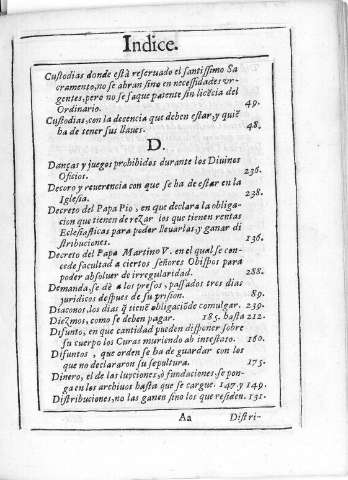 Indice.
Custodias donde està reseruado el santissimo Sa
cramento, no se abran sino en necessidades vr-
gentes, pero no se saque patente sin licẽcia del
Ordinario. 49.
Custodias, con la decencia que deben estar, y quiẽ
ha de tener sus llaues. 48.
D.
Danças y juegos prohibidos durante los Diuinos
Oficios. 236.
Decoro y reuerencia con que se ha de estar en la
Iglesia. 238.
Decreto del Papa Pio, en que declara la obliga-
cion que tienen de rezar los que tienen rentas
Eclesiasticas para poder lleuarlas, y ganar di
stribuciones. 136.
Decreto del Papa Martino V. en el qual se con-
cede facultad a ciertos señores Obispos para
poder absoluer de irregularidad. 288.
Demanda, se dè a los presos, passados tres dias
juridicos despues de su prision. 89.
Diaconos, los dias q̃ tienẽ obligaciõ de comulgar. 239.
Diezmos, como se deben pagar. 185. hasta 212.
Difunto, en que cantidad pueden disponer sobre
su cuerpo los Curas muriendo ab intestato. 160.
Difuntos, que orden se ha de guardar con los
que no declararon su sepultura. 175.
Dinero, el de las luyciones, ò fundaciones, se pon-
ga en los archiuos hasta que se cargue. 147 y 149.
Distribuciones, no las ganen sino los que residen. 131.
Aa Distri-